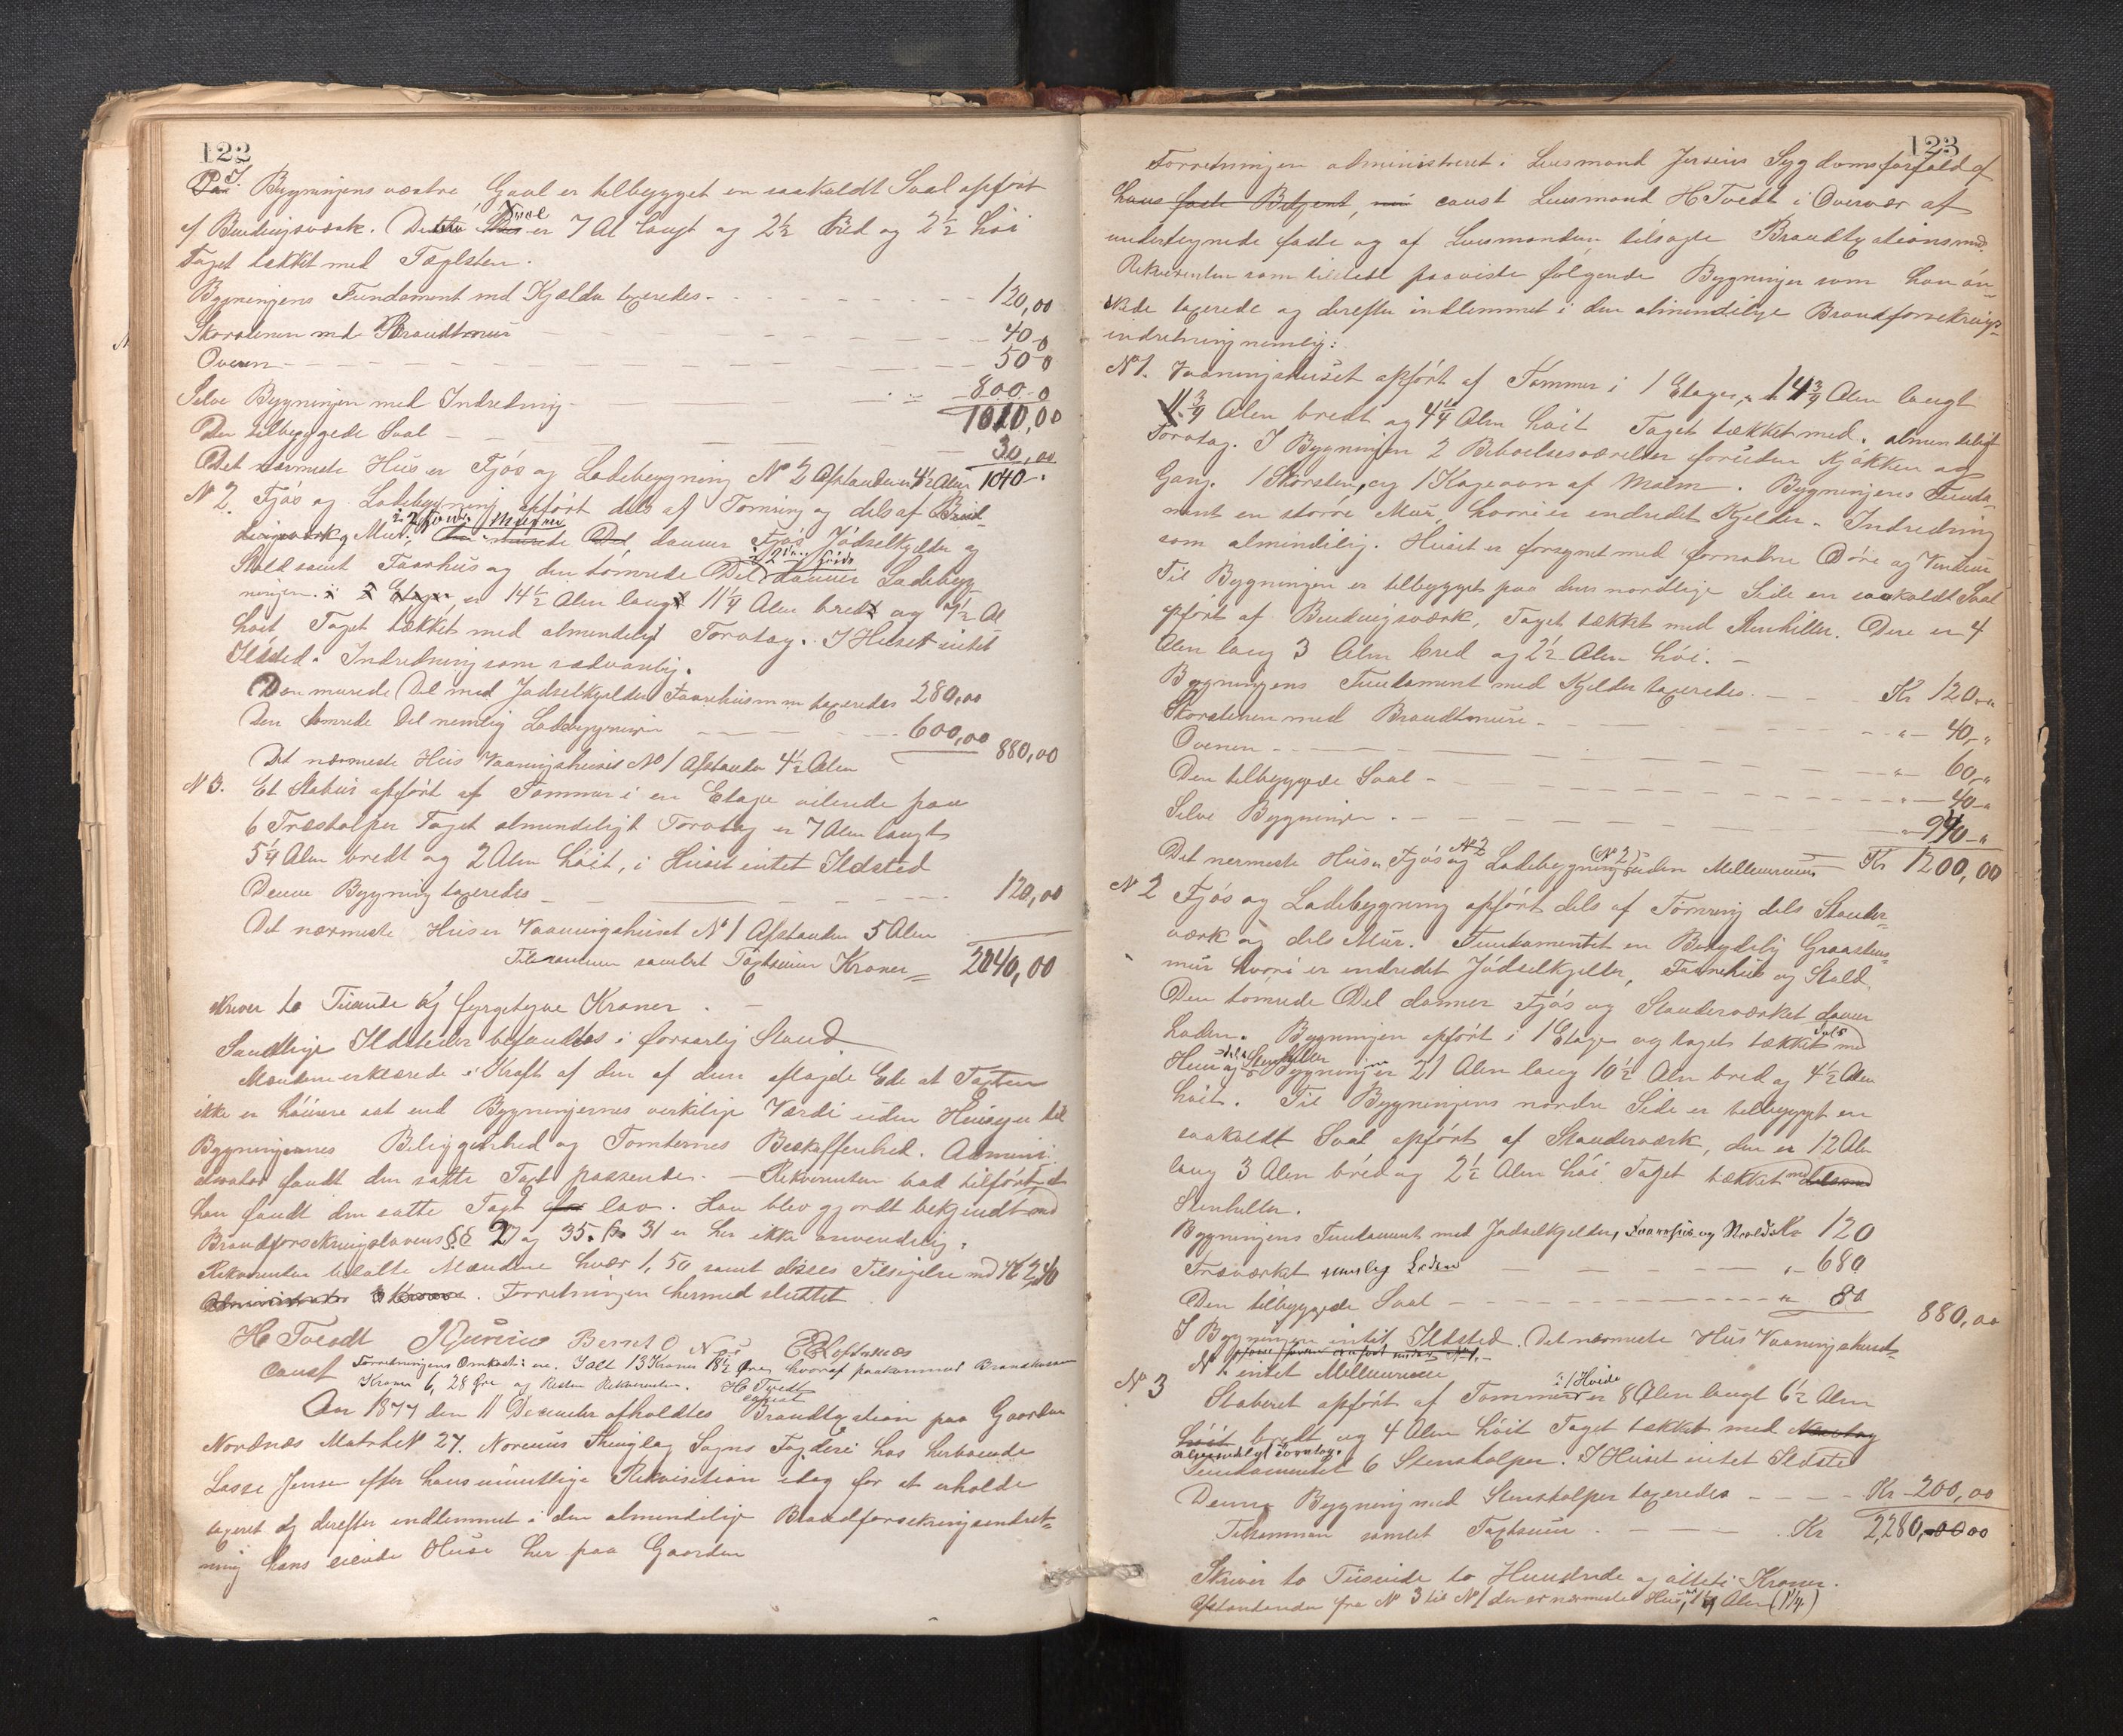 122
I Bygningens vestre Gavl er tilbygget en saakaldt Sval opført
af Bindingsværk. Denne Sval er 7 Al langt og 2½ Bred og 2½ høi
Taget tækket med Taglsten.
Bygningens Fundament md Kjælder taxeredes - 120,00
Skorstenen md Brandtmur 40-0
Ovnen 50-0
Selve Bygningen med Indredning 800-0
1010,00
Den tilbyggede Sval 30,00
Det nærmeste Hus er Fjøs og Ladebygning No 2 Afstanden 4½ Alen 1040-
N 2. Fjøs og Ladebygning opført dels af Tømring og dels af Bind-
dingsværk og Mur. danner Fjøs Jødselkjelder og
Stald samt Faarhus og den tømrede Del danner Ladebyg
ningen. er 14½ Alen langt 11¼ Alen bredt og 7½ Al
høit Taget tækket med almindeligt Torvtag. I Huset intet
Ildsted. Indredning som sædvanlig.
Den murede Del med Jødselkjelder Faarehus m m taxeredes 280,00
Den tømrede Del nemlig Ladebygningen 600,00 880,00
Det nærmeste Hus Vaaningshuset No 1 Afstanden 4½ Alen
N 3. Et Stabur opført af Tømmer i en Etage hvilende paa
6 Træstolper Taget almindeligt Torvtag er 7 Alen langt
5¼ Alen bredt og 2 Alen høit, i Huset intet Ildsted
Denne Bygning taxeredes 120,00
Det nærmeste Hus er Vaaningshuset No 1 Afstanden 5 Alen
Tilsammen samlet Taxtsum Kroner 2040,00
skriver to Tusinde og fyrgetyve Kroner.
Samtlige Ildsteder befandtes i forsvarlig Stand
Mændene erklærede i Kraft af den af dem aflagde Ed at Taxten
ikke er høiere sat end Bygningernes virkelige Værdi uden Hensyn til
Bygningernes Beliggenhed og Tomternes Beskaffenhed. Admini-
strator fandt den satte Taxt passende. - Rekvirenten bad tilført at
han fandt den satte Taxt lav. Han blev gjordt bekjendt med
Brandforsikringslovens §§ 27 og 35. § 31 er her ikke anvendelig.
Rekvirenten betalte Mændene hver 1,50 samt disses Tilsigelse md Kr 2,40
Forretningen hermed sluttet
H Tvedt Bernt O Næs
const Forretningens Omkostn: ere. Ialt 13 Kroner 18½ Øre hvoraf paakommer Brandkassen
Kroner 6,28 Øre og Resten Rekvirenten. H Tvedt
const
Aar 1877 den 11 December afholdtes Brandtaxation paa Gaarden
Nordnæs Matr No 27. Thinglag Sogns Fogderi hos herboende
Lasse Jensen efter hans mundtlige Rekvisition idag for at erholde
taxeret og derefter indlemmet i den almindelige Brandforsikringsindret-
ning hans eiende Huse her paa Gaarden
123
Forretningen administreret i Lensmand Jersins Sygdomsforfald af
hans faste Betjent, const Lensmand H Tvedt i Overvær af
undertegnede faste og af Lensmanden tilsagte Brandtaxationsmd
Rekvirenten som tilstede paaviste følgende Bygninger som han øn-
skede taxerede og derefter indlemmet i den almindelige Brandforsikrings-
indretning nemlig:
No 1. Vaaningshuset opført af Tømmer i 1 Etage, 14¾ Alen langt
11¾ Alen bredt og 4¼ Alen høit Taget tækket med almindeligt
Torvtag. I Bygningen 2 Beboelsesværelser foruden Kjøkken og
Gang. 1 Skorsten, og 1 Kageovn af Malm. Bygningens Funda-
ment en større Mur, hvori er indredet Kjelder. Indredning
som almindelig. Huset er forsynet med fornødne Døre og Vinduer
Til Bygningen er tilbygget paa dens nordlige Side en saakaldt Sval
opført af Bindingsværk, Taget tækket med Stenheller. Den er 4
Alen lang 3 Alen bred og 2½ Alen høi. -
Bygningens Fundament med Kjelder taxeredes Kr 120-"
Skorstenen med Brandtmur " 40-"
Ovnen " 60-"
Den tilbyggede Sval " 40-"
Selve Bygningen " 940-"
Det nærmeste Hus Fjøs og Ladebygning (No 2) uden Mellemrum Kr 1200,00
No 2 Fjøs og Ladebygning opført dels af Tømring dels Stander-
værk og dels Mur. Fundamentet en Betydelig Graastens-
mur hvori er indredet Jødselkjelder, Faarehus og Stald.
Den tømrede Del danner Fjøs og Standerværket danner
Laden. Bygningen opført i 1 Etage og taget tækket dels med
Hun og dels Stenheller Bygningen er 21 Alen lang 10½ Alen bred og 4½ Alen
høit. Til Bygningens nordre Side er tilbygget en
saakaldt Sval opført af Standerværk, den er 12 Alen
lang 3 Alen bred og 2½ Alen høi Taget tækket med
Stenheller.
Bygningens Fundament med Jødselkjelder, Faarehus og Stald Kr 120
Træværket nemlig Laden " 680
Den tilbyggede Sval " 80 880,00
I Bygningen intet Ildsted. Det nærmeste Hus Vaaningshuset
No 1 intet Mellemrum
No 3 Staburet opført af Tømmer i 1 Høide er 8 Alen langt 6½ Alen
høit bredt og 4 Alen høit Taget tækket med Næsvtag
almindeligt Torvtag.
Fundamentet 6 Stenstolper. I Huset intet Ildsted
Denne Bygning med Stenstolper taxeredes Kr 200,00
Tilsammen samlet Taxtsum Kr 2,280,00
Skriver to Tusinde to Hundrede og otteti Kroner.
Afstanden fra No 3 til No 1 der er nærmeste Hus, Alen (1¼)